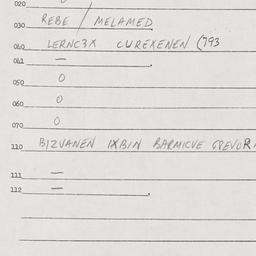 020
030 REBE / MELAMED
040 LERNC3X CUREXENEN (793
041 —
050 O
060 O
070 O
110 BIZVANEN IXBIN BARMICVE GEVOR
111 —
112 —